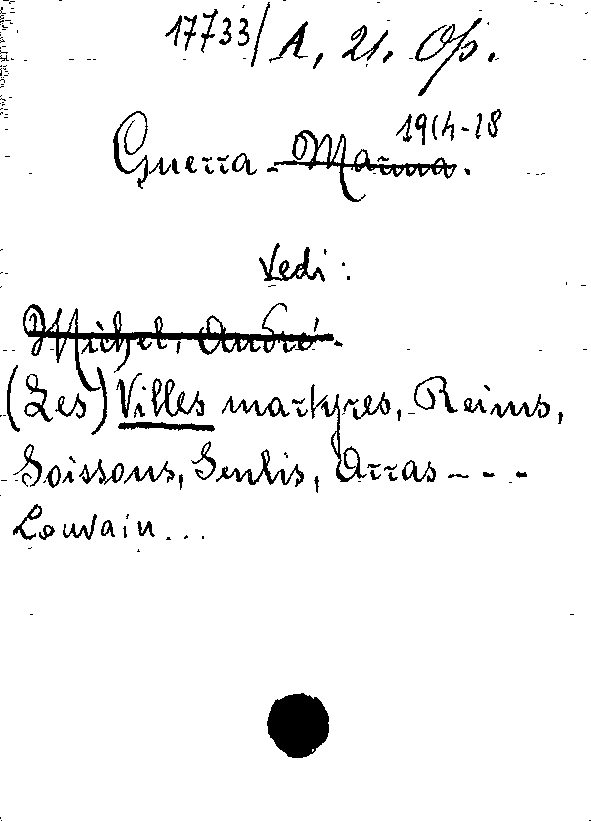 17733/A, 21. Op.
1914-18
Guerra - Marna.
Vedi:
Michel, André.
(Les) Villes martyres, Reims,
Soissons, Senlis, Arras - - -
Louvain...